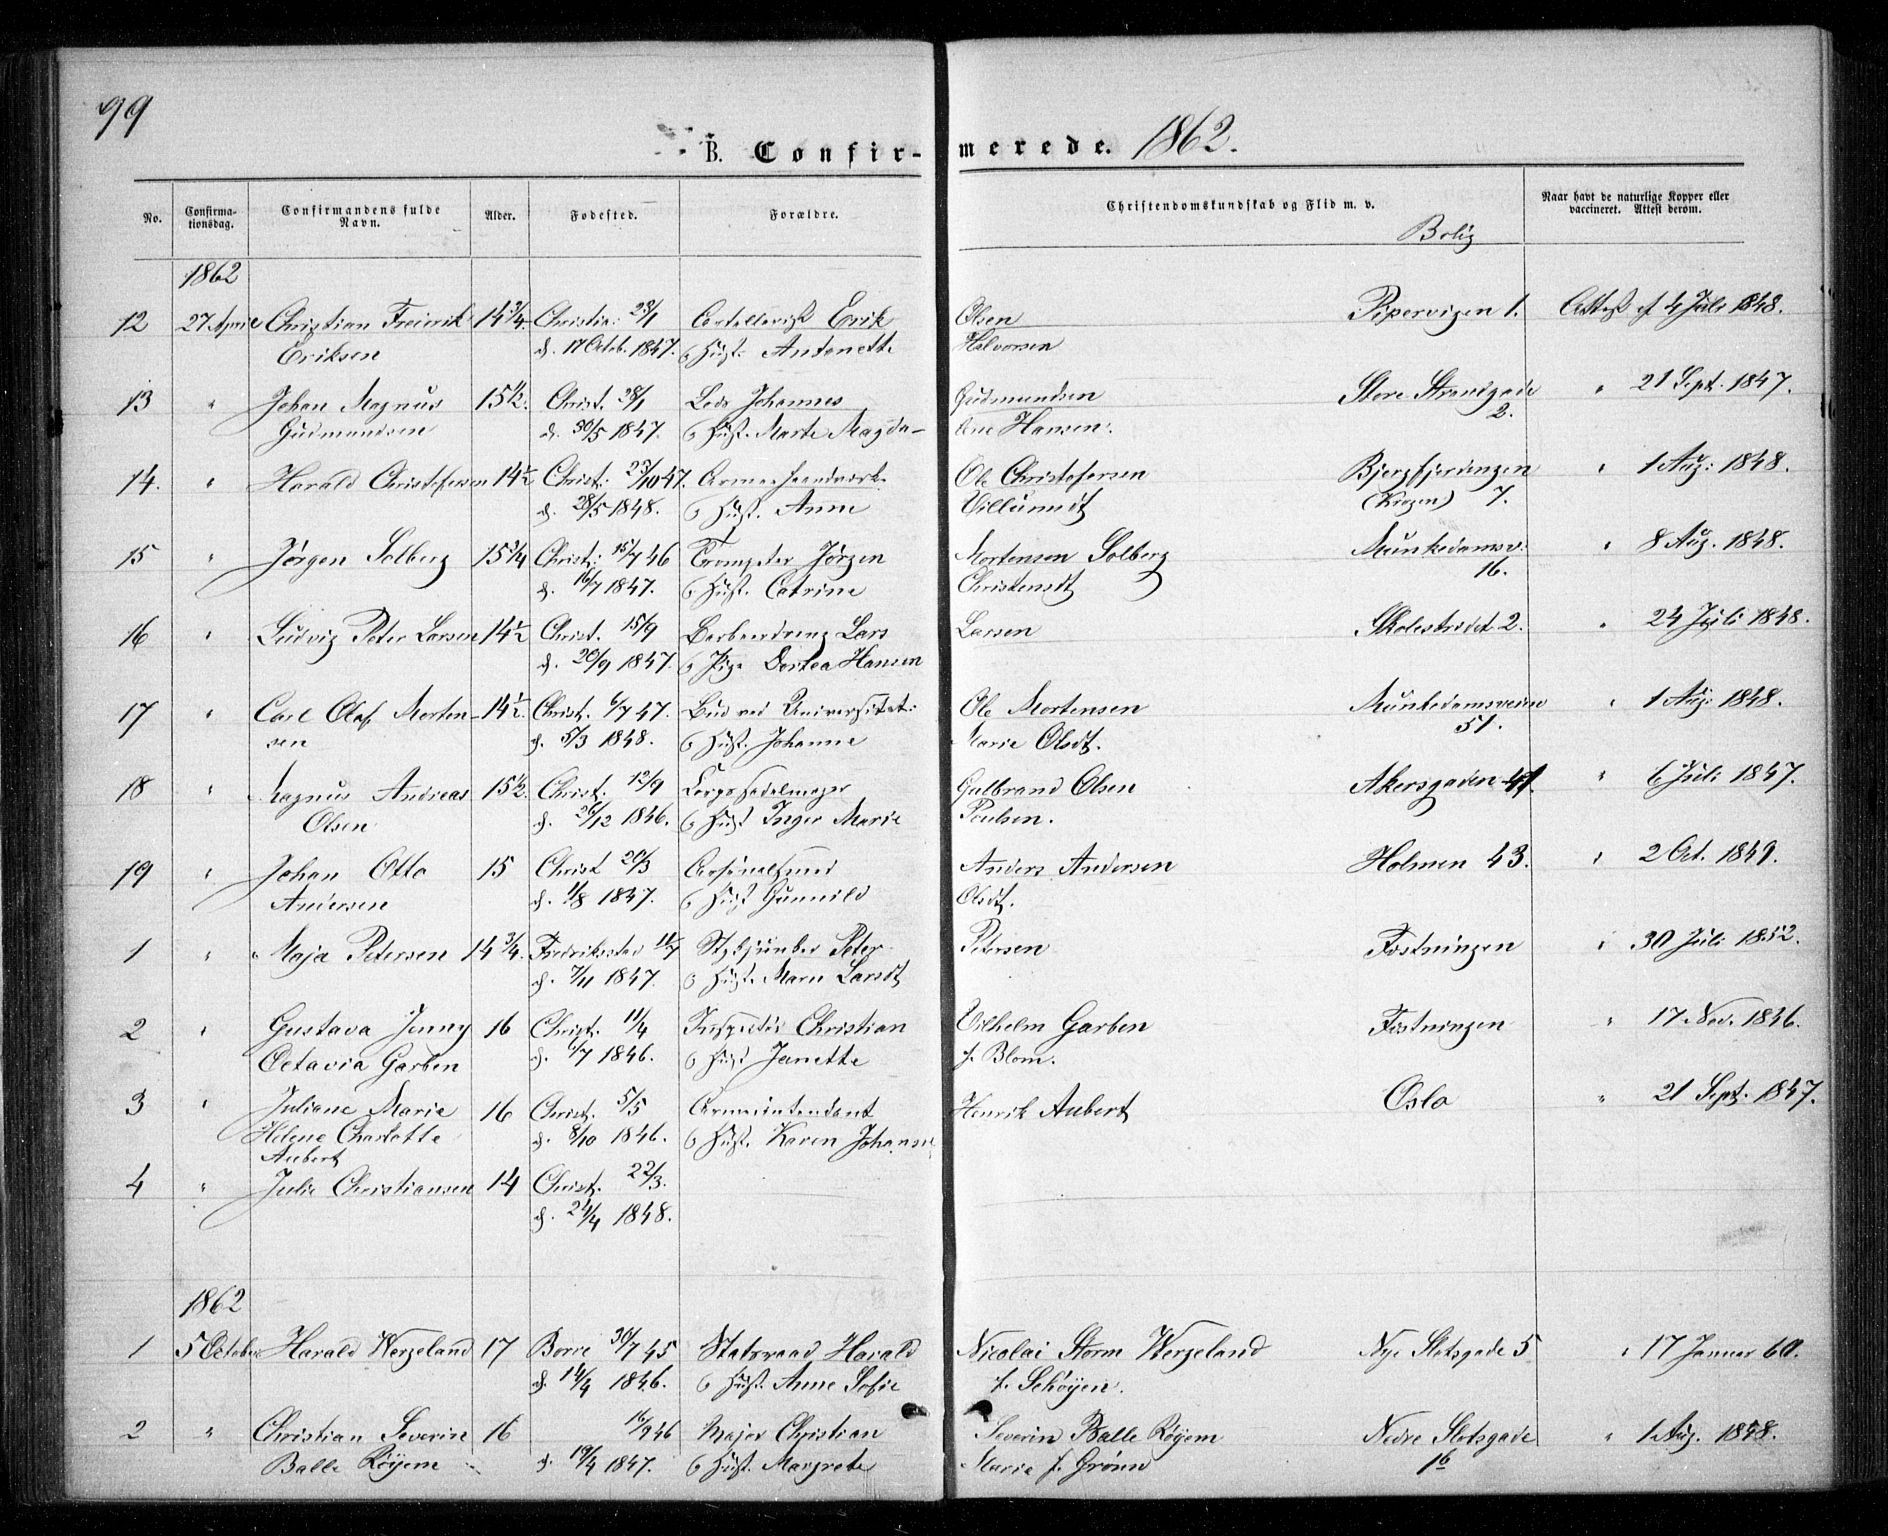 99
B. Confir- merede. 1862.
No. Confirma-tionsdag. Confirmandens fulde Navn. Alder. Fødested. Forældre. Christendomskundskab og Flid m. v. Naar havt de naturlige Kopper eller vaccineret. Attest derom.
Bolig
1862
12 27 April Christian Fredrik 14 3/4 Christia: 23/1 Erik Olsen Pipervigen 1. Attest af 4 Juli 1848.
Eriksen d. 17 Octob. 1847. o Hust. Antonette Halvorsen
13 " Johan Magnus 15 1/2. Christ. 28/1 Lods Johannes Gudmundsen Store Strandgade " 21 Sept. 1847.
Gudmundsen d. 30/5 1847. o Hust. Marte Magda- lene Hansen. 2.
14. " Harald Christofersen 14 1/2 Christ: 23/10 47. Ole Christofersen Bjergfjerdingen " 1 Aug: 1848.
d. 28/5 1848. o Hust. Anne Villumsdt (Krogen) 7.
15 " Jørgen Solberg 15 3/4 Christ: 15/7 46 Trompeter Jørgen Mortensen Solberg Munkedamsv: " 8 Aug. 1848.
d. 16/7 1847. o Hust. Catrine Christensdt 16.
16 " Ludvig Peter Larsen 14 1/2 Christ. 15/9 Lars Larsen Skolestrædet 2. " 24 Juli 1848.
d. 20/9 1847. o Pige Dortea Hansen
17 " Carl Olaf Morten- 14 1/2. Christ. 6/7 47. Bud ved Universitet: Ole Mortensen Munkedamsveien " 1 Aug: 1848.
sen d. 5/3 1848. o Hust. Johanne Marie Olsdt. 51.
18 " Magnus Andreas 15 1/2. Christ. 12/9 Corpssadelmager Gulbrand Olsen Akersgaden 41. " 6 Juli 1847.
Olsen d. 26/12 1846. o Hust Inger Marie Poulsen.
19 " Johan Otto 15 Christ 20/3 Arsenalsmed Anders Andersen Holmen 43. " 2 Oct. 1849.
Andersen d. 1/8 1847. o Hust Gunnild Olsdt.
1 " Maja Petersen 14 3/4. Fredriksstad 11/7 Stykjunker Peter Petersen Fæstningen " 30 Juli 1852.
d. 7/11 1847. o Hust. Maren Larsdt
2 " Gustava Jenny 16 Christ. 11/4 Christian Vilhelm Garben Fæstningen " 17 Nov. 1846.
Octavia Garben d. 6/7 1846. o Hust Janette f. Blom.
3 " Juliane Marie 16 Christ. 5/5 Armeintendant Henrik Aubert Oslo " 21 Sept. 1847.
Helene Charlotte d. 8/10 1846. o Hust. Karen Johanne
Aubert
4 " Julie Christiansen 14 Christ. 22/3.
d. 24/4 1848.
1862
1 5 October Harald Wergeland 17 Borre 30/7 45 Statsraad Harald Nicolai Storm Wergeland Nye Slotsgade 5 " 17 Januar 60.
d. 14/4 1846. o Hust. Anne Sofie f. Schøyen.
2 " Christian Severin 16 16/9 46 Major Christian Severin Balle Røyem Nedre Slotsgade " 1 Aug. 1848.
Balle Røyem d. 19/4 1847. o Hust. Margrete Marie f. Grønn 16